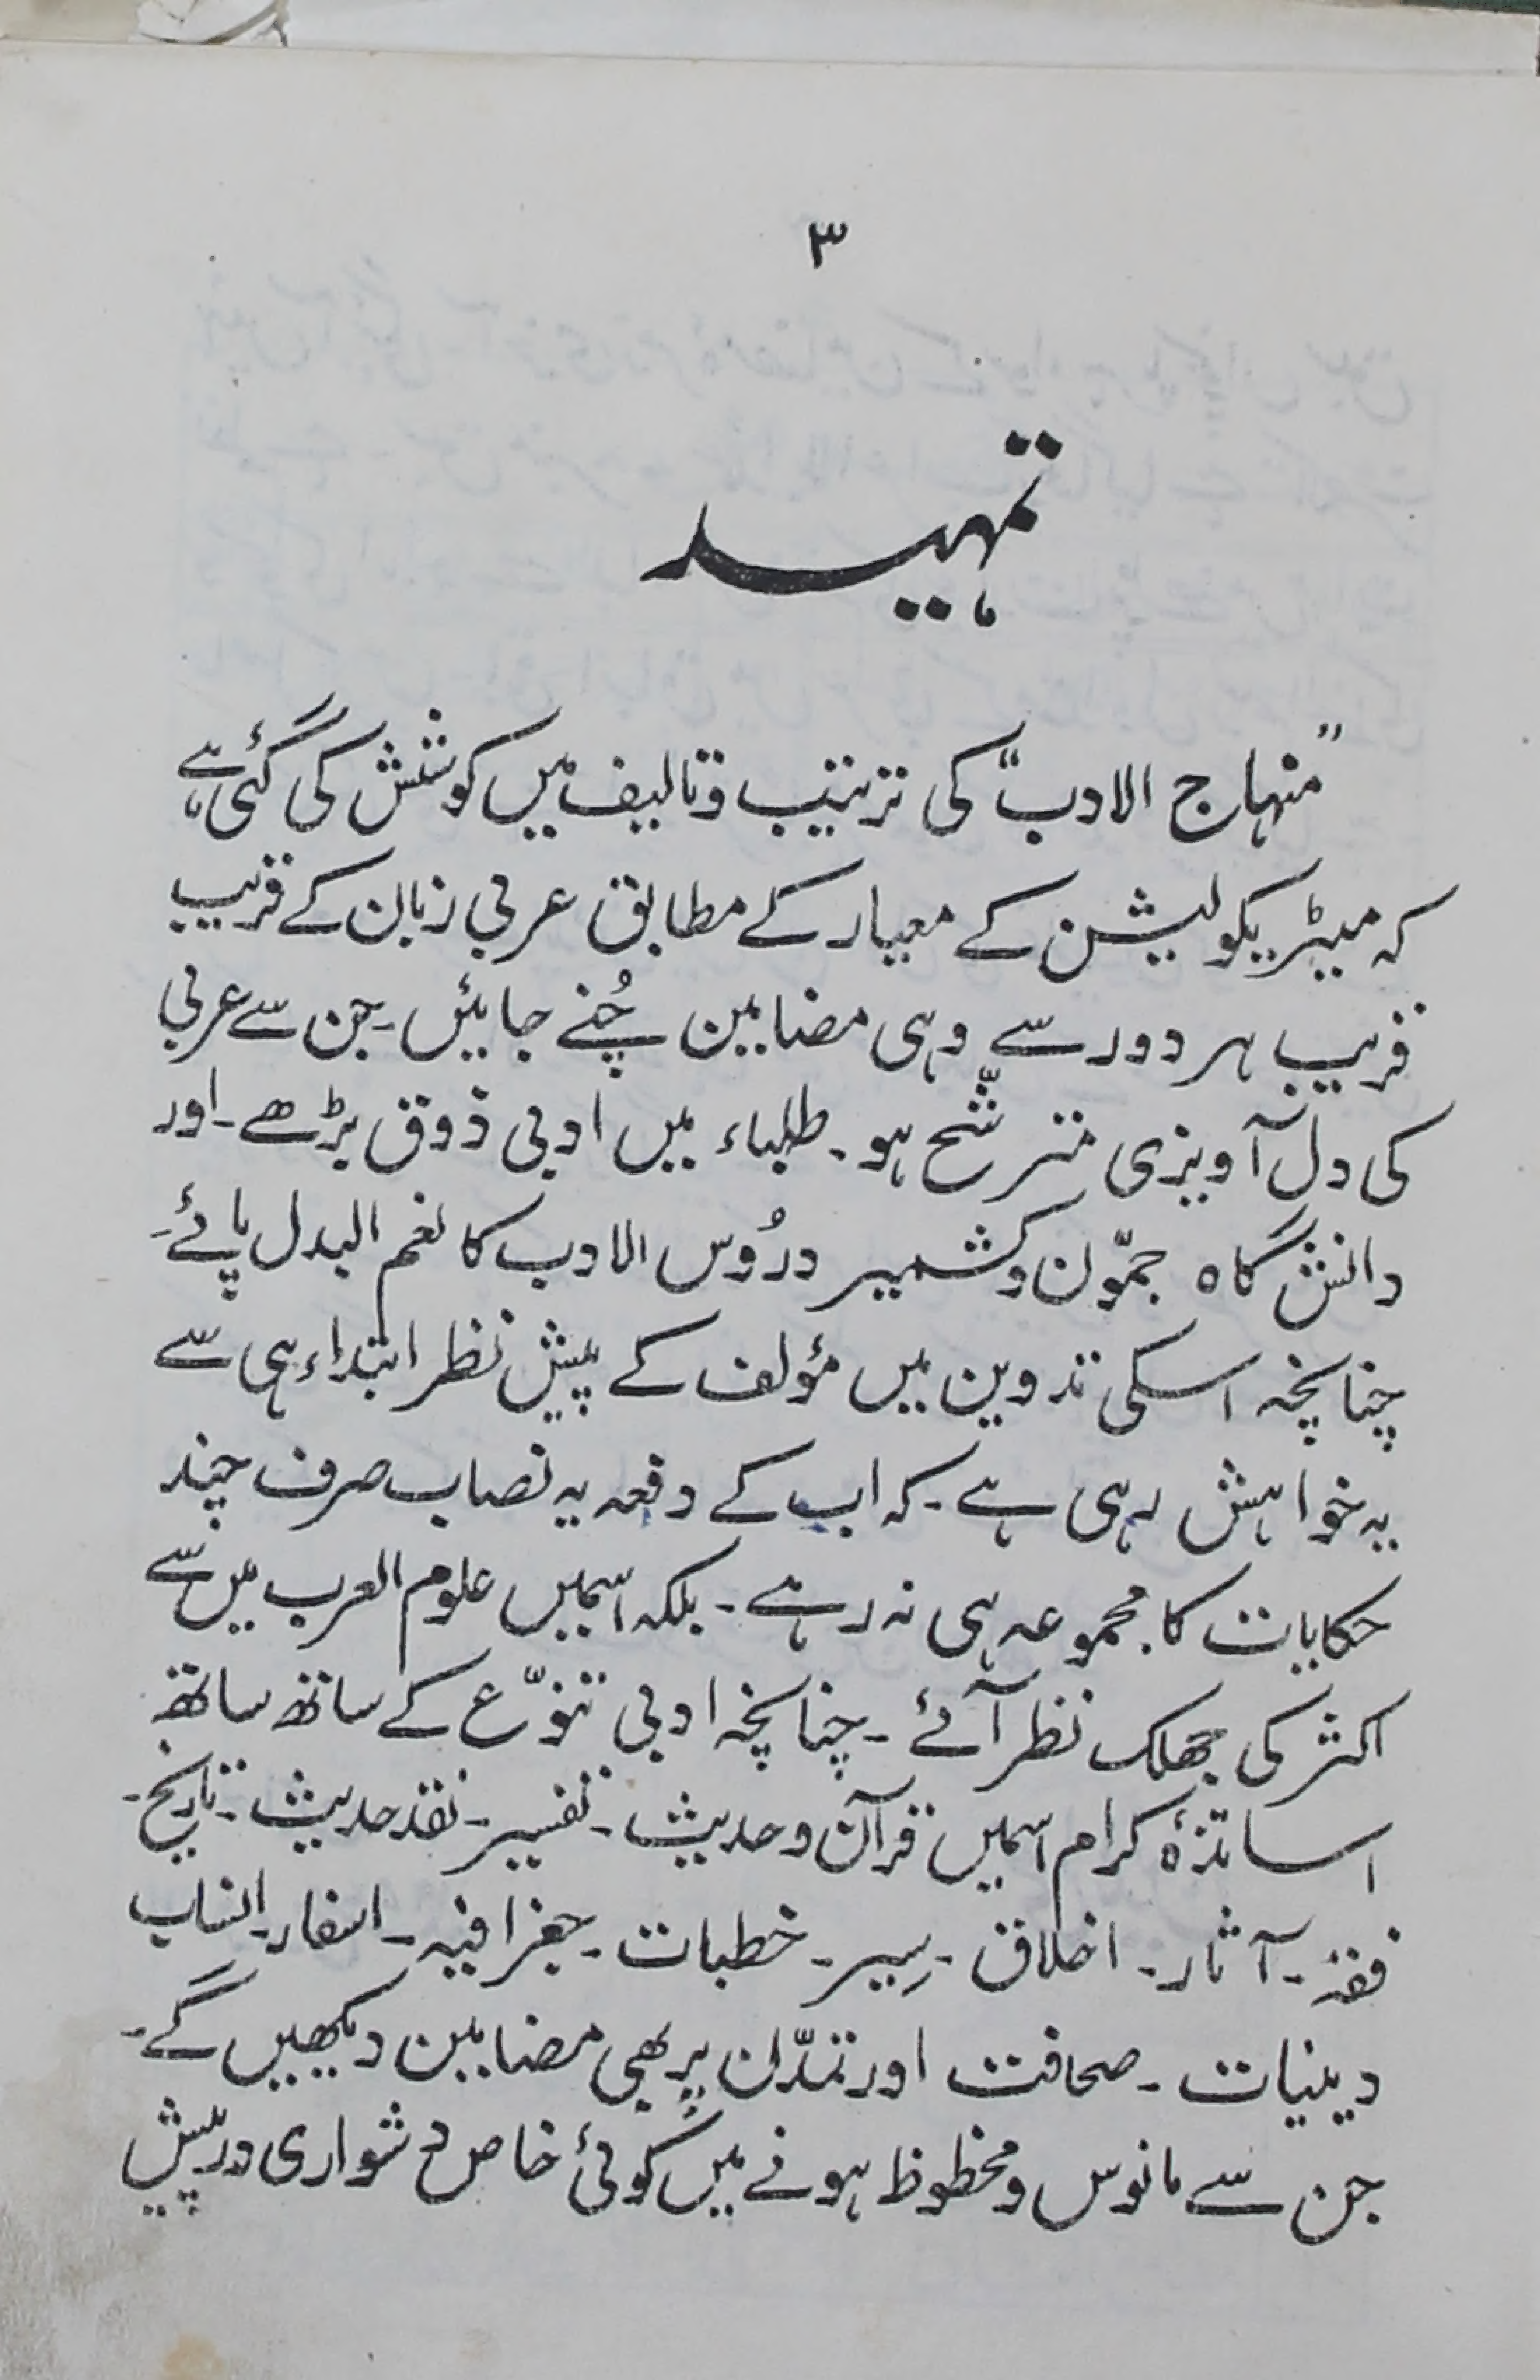 ۳
تمہید
"منہاج الادب" کی ترتیب وتالیف میں کوشش کی گئی ہے
کہ میٹریکولیشن کے معیار کے مطابق عربی زبان کے قریب
قریب ہر دور سے وہی مضامین چُنے جایئں۔ جن سے عربی
کی دل آویزی مترشّح ہو۔ طلباء میں ادبی ذوق بڑھے۔ اور
دانش گاہ جمّون وکشمیر درُوس الادب کا نغم البدل پائے۔
چنانچہ اسکی تدوین میں مؤلف کے پیش نظر ابتداء ہی سے
یہ خواہش رہی ہے۔ کہ اب کے دفعہ یہ نصاب صرف چند
حکایات کا مجموعہ ہی نہ رہے۔ بلکہ اسمیں علوم العرب میں سے
اکثر کی جھلک نظر آئے۔ چنانچہ ادبی تنوّع کے ساتھ ساتھ
اساتذۂ کرام اسمیں قرآن و حدیث۔ تفسیر۔ نقد حدیث۔ تاریخ۔
فقہ۔ آثار۔ اخلاق۔ سِیر۔ خطبات۔ جغرافیہ۔ اسفار۔ انساب
دینیات۔ صحافت اور تمدّن پر بھی مضامین دیکھیں گے۔
جن سے مانوس ومحظوظ ہونے میں کوئی خاص دشواری درپیش